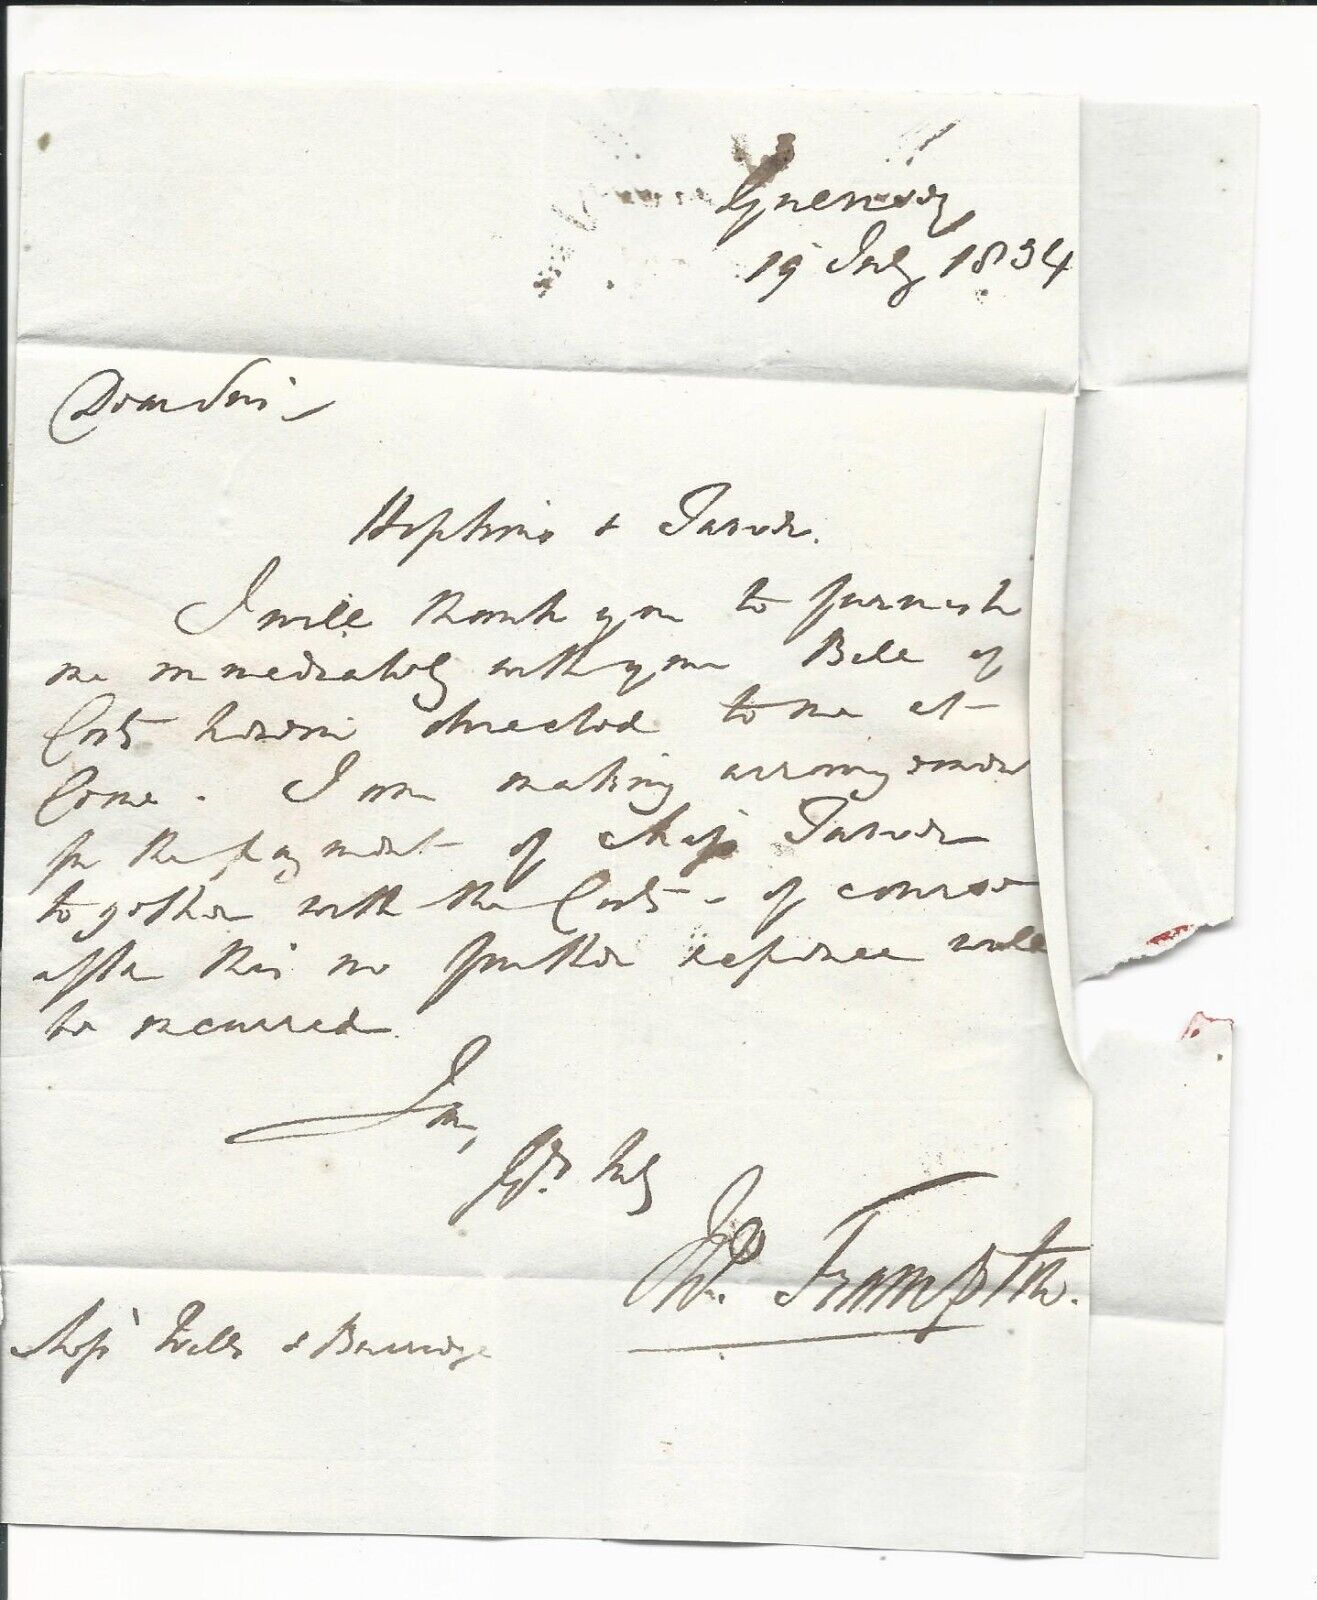 Guernsey
19 July 1834
Dear Sirs
Hopkins & Turner.
I will thank you to furnish
me immediately with your Bill of
Costs herein directed to me at
Come. I am making arrangemen
for the payment of Messrs Turner
together with the Costs - of course
after this no further expence will
be incurred.
I am,
Yrs. truly
Frampton.
Messrs & Berridge